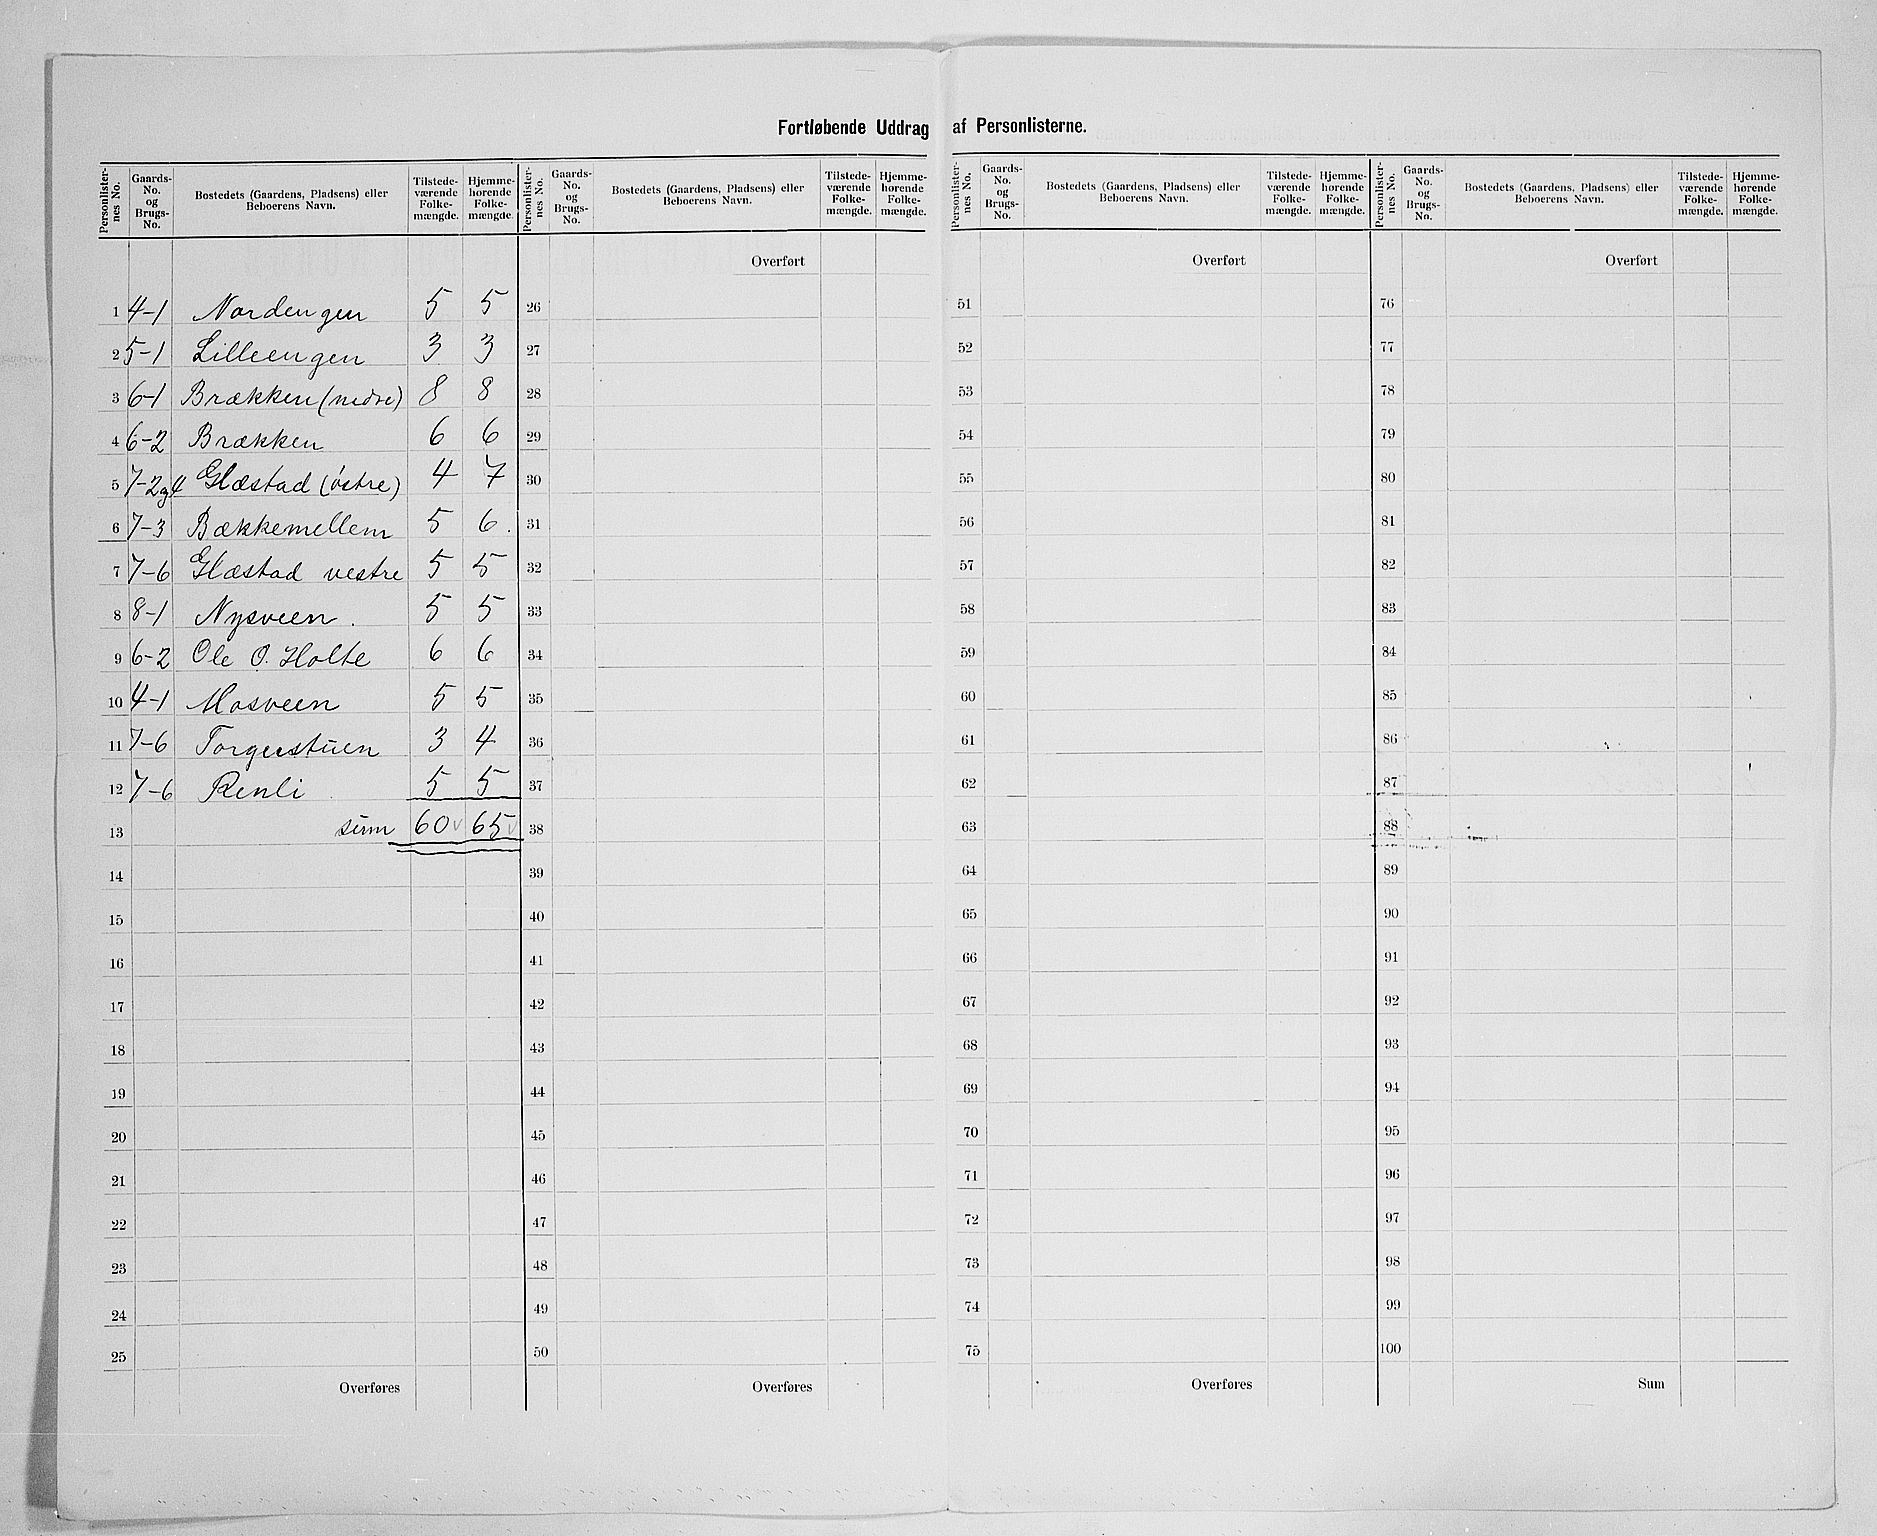 Fortløbende Uddrag af Personlisterne.
Personlister-nes No. | Gaards-No. og Brugs-No. | Bostedets (Gaardens, Pladsens) eller Beboerens Navn. | Tilstede-værende Folke-mængde. | Hjemme-hørende Folke-mængde.
1 4-1 Nordengen 5 5
2 5-1 Lilleengen 3 3
3 6-1 Brækken (nedre) 8 8
4 6-2 Brækken 6 6
5 7-2og4 Glæstad (østre) 4 7
6 7-3 Bækkemellem 5 6.
7 7-6 Glæstad vestre 5 5
8 8-1 Nysveen. 5 5
9 6-2 Ole O. Holte 6 6
10 4-1 Mosveen 5 5
11 7-6 Torgerstuen 3 4
12 7-6 Renli 5 5
13 sum 60 65
14
15
16
17
18
19
20
21
22
23
24
25
Overføres
Personlister-nes No. | Gaards-No. og Brugs-No. | Bostedets (Gaardens, Pladsens) eller Beboerens Navn. | Tilstede-værende Folke-mængde. | Hjemme-hørende Folke-mængde.
Overført
26
27
28
29
30
31
32
33
34
35
36
37
38
39
40
41
42
43
44
45
46
47
48
49
50
Overføres
Personlister-nes No. | Gaards-No. og Brugs-No. | Bostedets (Gaardens, Pladsens) eller Beboerens Navn. | Tilstede-værende Folke-mængde. | Hjemme-hørende Folke-mængde.
Overført
51
52
53
54
55
56
57
58
59
60
61
62
63
64
65
66
67
68
69
70
71
72
73
74
75
Overføres
Personlister-nes No. | Gaards-No. og Brugs-No. | Bostedets (Gaardens, Pladsens) eller Beboerens Navn. | Tilstede-værende Folke-mængde. | Hjemme-hørende Folke-mængde.
Overført
76
77
78
79
80
81
82
83
84
85
86
87
88
89
90
91
92
93
94
95
96
97
98
99
100
Sum